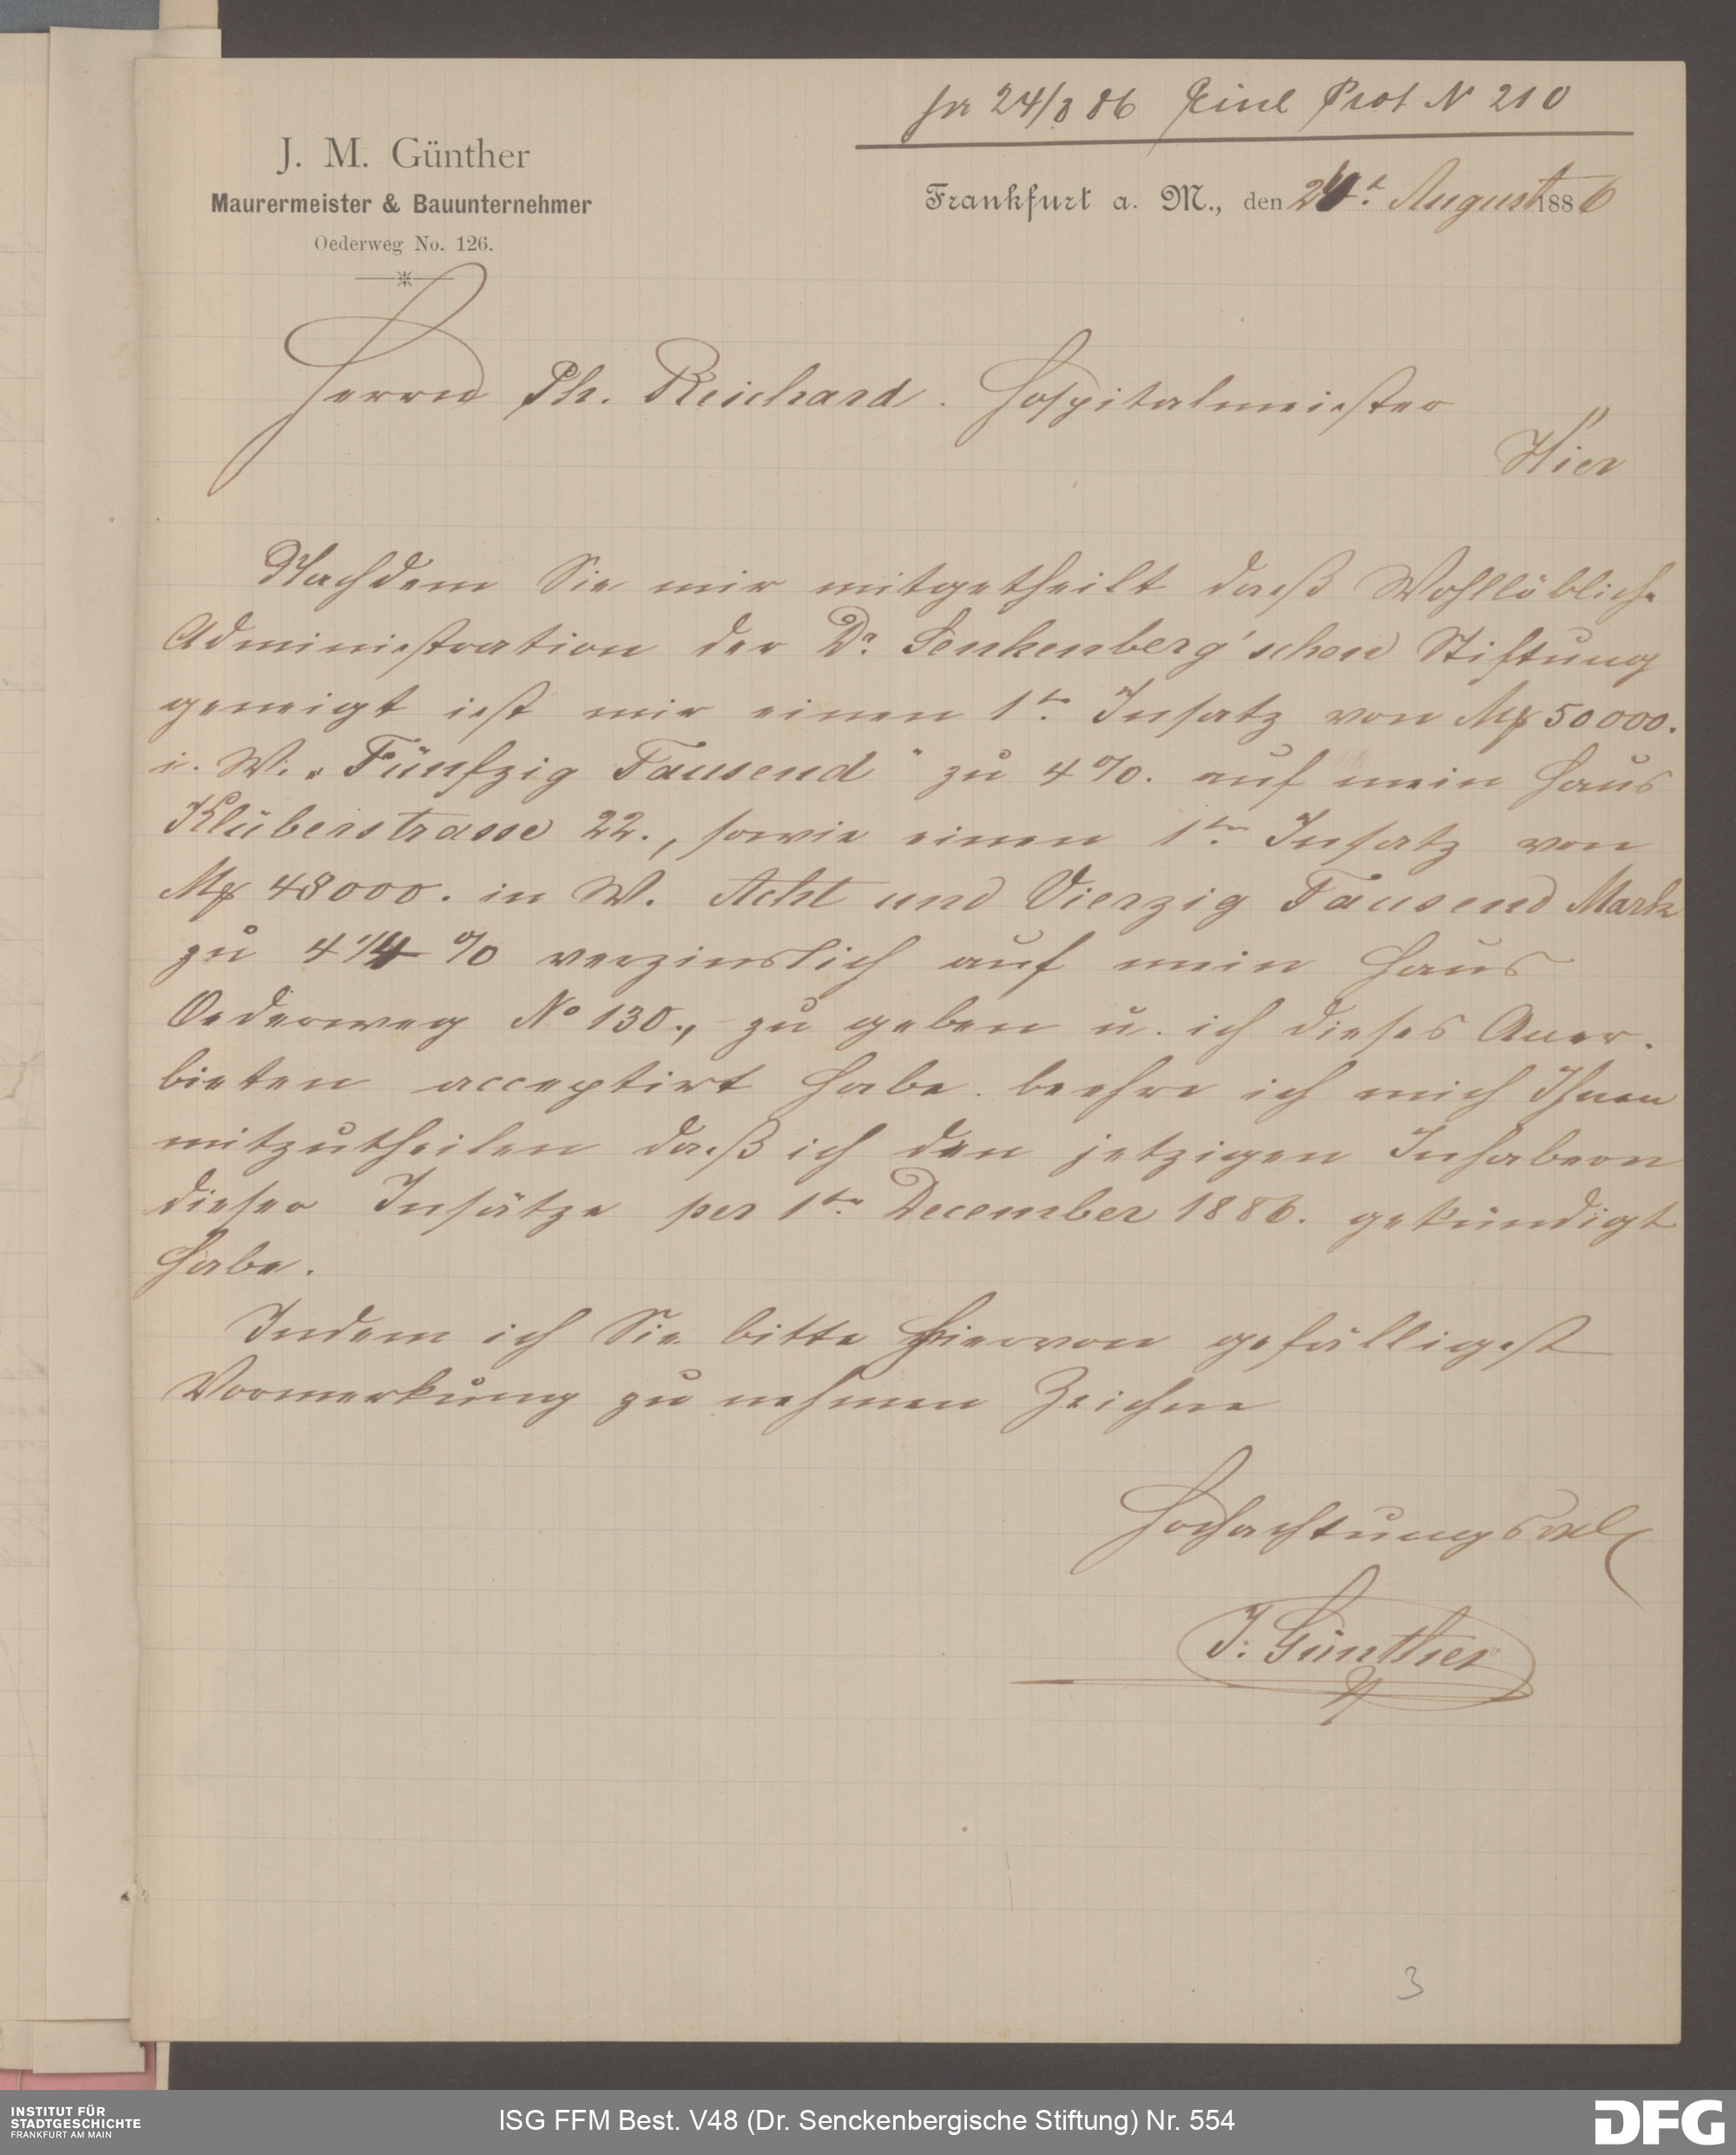 pr 24/8 86 Einl Prot N 210
J. M. Günther
Maurermeister & Bauunternehmer
Oederweg No. 126.
Frankfurt a. M., den 24t. August 1886
Herrn Ph. Reichard. Hospitalmeister
Hier
Nachdem Sie mir mitgetheilt daß Wohllöbliche
Administration der Dr. Senkenberg'schen Stiftung
geneigt ist mir einen 1ten. Insatz von Mk 50000.
i. W. „Fünfzig Tausend" zu 4%. auf mein Haus
Klüberstrasse 22., sowie einen 1ten. Insatz von
Mk 48000. in W. Acht und Vierzig Tausend Mark
zu 4 1/4 % verzinslich auf mein Haus
Oederweg No 130., zu geben u. ich dieses Aner-
bieten acceptirt habe. beehre ich mich Ihnen
mitzutheilen daß ich den jetzigen Inhabern
dieser Insätze per 1ten. December 1886. gekündigt
habe.
Indem ich Sie bitte hiervon gefälligst
Vormerkung zu nehmen Zeichne
Hochachtungsvoll
J. Günther
3
INSTITUT FÜR
STADTGESCHICHTE
FRANKFURT AM MAIN
ISG FFM Best. V48 (Dr. Senckenbergische Stiftung) Nr. 554
DFG